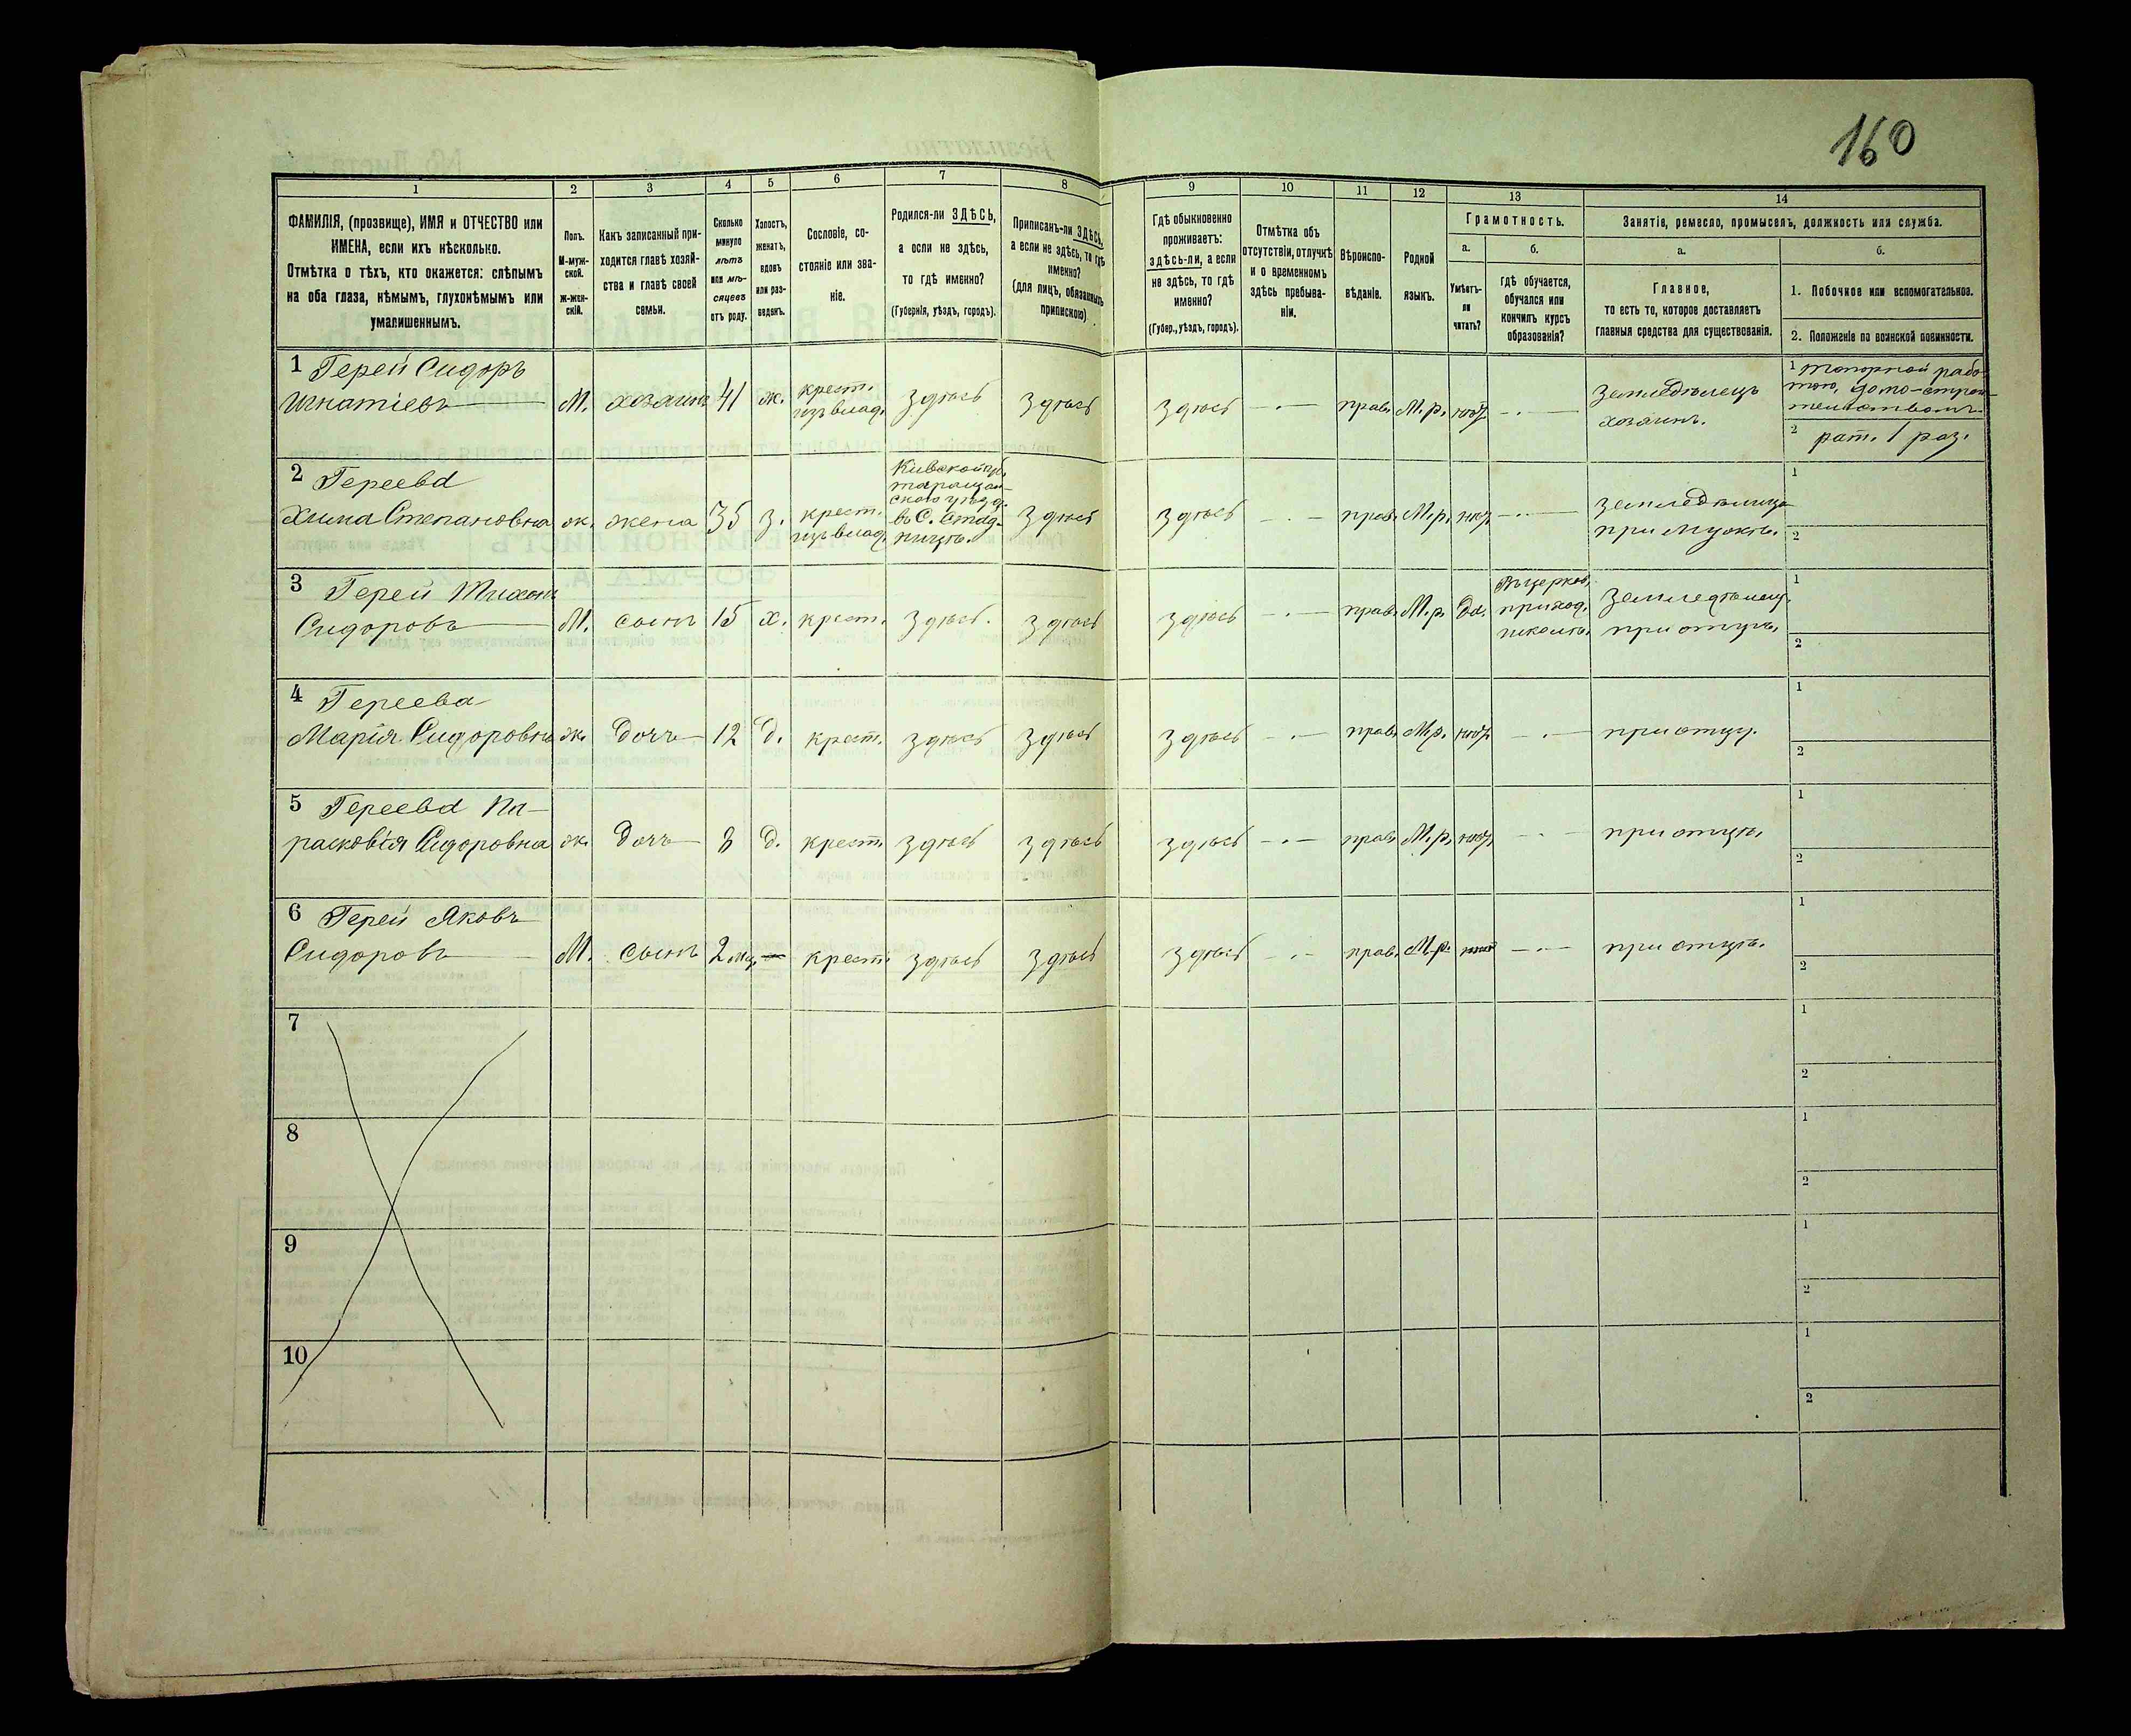 160
1
2
3
4
5
6
7
8
9
10
11
12
13
14
ФАМИЛІЯ, (прозвище), ИМЯ и ОТЧЕСТВО или
ИМЕНА, если ихъ нѣсколько.
Отмѣтка о тѣхъ, кто окажется: слѣпымъ
на оба глаза, нѣмымъ, глухонѣмымъ или
умалишеннымъ.
Полъ.
М-муж-
ской.
Ж-жен-
скій.
Какъ записанный при-
ходится главѣ хозяй-
ства и главѣ своей
семьи.
Сколько
минуло
лѣтъ
или мѣ-
сяцевъ
отъ роду.
Холостъ,
женатъ,
вдовъ
или раз-
веденъ.
Сословіе, со-
стояніе или зва-
ніе.
Родился-ли ЗДѢСЬ,
а если не здѣсь,
то гдѣ именно?
(Губернія, уѣздъ, городъ).
Приписанъ-ли ЗДѢСЬ,
а если не здѣсь, то гдѣ
именно?
(для лицъ, обязанныхъ
припиской)
Гдѣ обыкновенно
проживаетъ:
здѣсь-ли, а если
не здѣсь, то гдѣ
именно?
(Губер., уѣздъ, городъ).
Отмѣтка объ
отсутствіи, отлучкѣ
и о временномъ
здѣсь пребыва-
ніи.
Вѣроиспо-
вѣданіе.
Родной
языкъ.
Грамотность.
а.
Умѣетъ-
ли
читать?
б.
гдѣ обучается,
обучался или
кончилъ курсъ
образованія?
Занятіе, ремесло, промыселъ, должность или служба.
а.
Главное,
то есть то, которое доставляетъ
главныя средства для существованія.
б.
1. Побочное или вспомогательное.
2. Положеніе по воинской повинности.
1 Герей Сидоръ
Игнатіевъ
М. хозяинъ 41 ж. крест. изъ влад. здѣсь здѣсь здѣсь прав. М.р. нѣтъ
Земледѣлецъ
хозяинъ.
1 топорной рабо-
тою, домо-строи-
тельствомъ.
2 рат. 1 раз.
2 Гереева
Степановна
ж. жена 35 з. крест. изъ влад.
Кіевской губ.
таращан-
скаго уѣзда
въ С.
здѣсь здѣсь прав. М.р. нѣтъ
земледѣлица
при мужѣ.
1
2
3 Герей Тихонъ
Сидоровъ
М. сынъ 15 х. крест. здѣсь. здѣсь здѣсь прав. М.р. да.
Въ церков.
приход.
школѣ.
земледѣлец.
при отцѣ.
1
2
4 Гереева
Марія Сидоровна
ж. дочь 12 д. крест. здѣсь здѣсь здѣсь прав. М.р. нѣтъ при отцѣ.
1
2
5 Гереева Па-
расковія Сидоровна
ж. дочь 8 д. крест. здѣсь здѣсь здѣсь прав. М.р. нѣтъ при отцѣ.
1
2
6 Герей Яковъ
Сидоровъ
М. сынъ 2 мц. крест. здѣсь здѣсь здѣсь прав. М.р. при отцѣ.
1
2
7
1
2
8
1
2
9
1
2
10
1
2